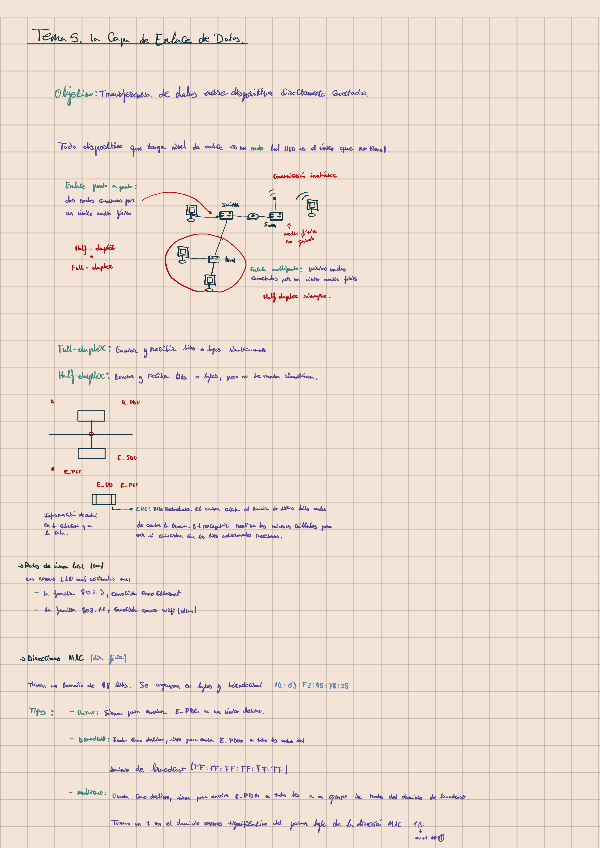 Tema 5. La Capa de Enlace de Datos.
Objetivo: Transferencia de datos entre dispositivos directamente conectados.
Todo dispositivo que tenga nivel de enlace es un nodo (el HUB es el único que no tiene).
Comunicación inalámbrica
Enlace punto a punto:
dos nodos conectados por
un único medio físico
Switch
Half-duplex
Full-duplex
medio físico
no guiado
Hub
Enlace multipunto: varios nodos
conectados por un único medio físico
Half duplex siempre.
Full-duplex: Enviar y recibir bits o bytes simultáneamente
Half-duplex: Enviar y recibir bits o bytes, pero no de modo simultáneo.
R_PDU
E_SDU
E_PCI
E_UD E_PCI
Información de control
en la cabecera y en
la cola.
CRC: Bits redundantes. El emisor
de enviar la trama. El receptor realiza los mismos cálculos para
ver si coinciden con los bits adicionales recibidos.
→ Redes de área local (LAN)
Las normas LAN más utilizadas son:
- La familia 802.3, conocida como Ethernet
- La familia 802.11, conocida como WiFi (WLAN)
→ Direcciones MAC (dir. física)
Tienen un tamaño de 48 bits. Se agrupan en bytes y hexadecimal
Tipos: - Unicast: Sirven para enviar E_PDUs a un único destino.
- Broadcast: como destino, sirve para enviar E_PDUs a todos los nodos del
dominio de broadcast (FF:FF:FF:FF:FF:FF)
- Multicast: como destino, sirven para enviar E_PDUs a todos los a un grupo de nodos del dominio de broadcast.
Tienen un 1 en el menos significativo del primer byte de la dirección MAC